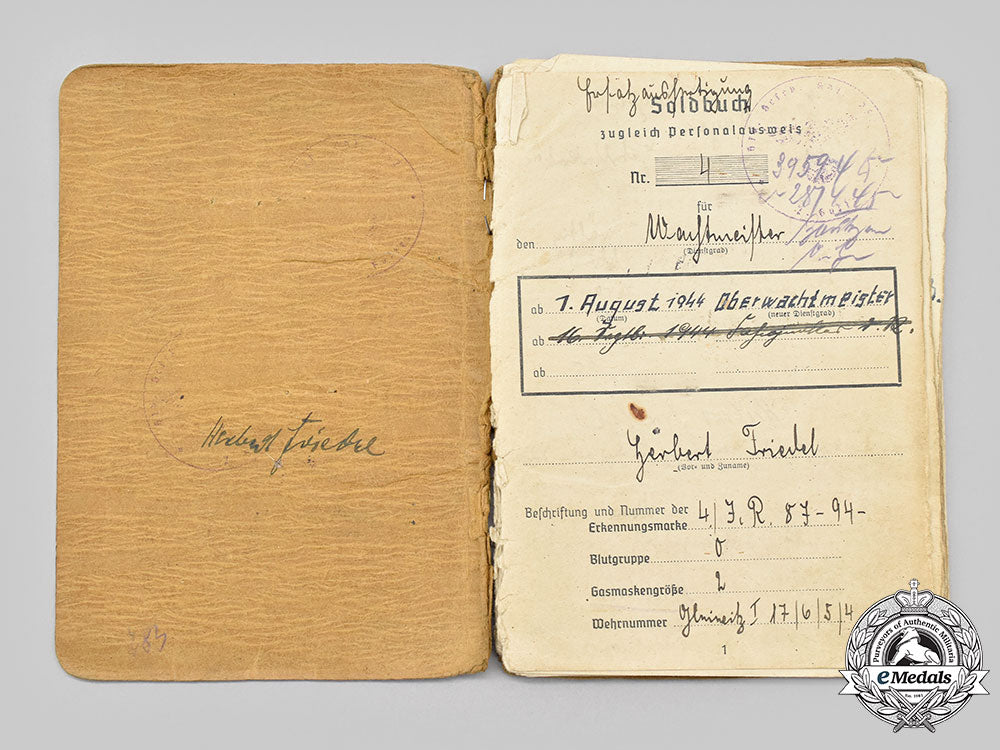 Herbert Friedel
Ersatzausfertigung
Soldbuch
zugleich Personalausweis
Nr. 4
395945
28/4.45
für
den Wachtmeister
(Dienstgrad)
ab 1. August 1944 Oberwachtmeister
(Datum) (neuer Dienstgrad)
ab 16. 1944 d. R.
ab
Herbert Friedel
(Vor- und Zuname)
Beschriftung und Nummer der
Erkennungsmarke 4/J.R. 87-94-
Blutgruppe 0
Gasmaskengröße 2
Wehrnummer Gleiwitz I 17/6/5/4
1
Purveyors of Authentic Militaria
eMedals